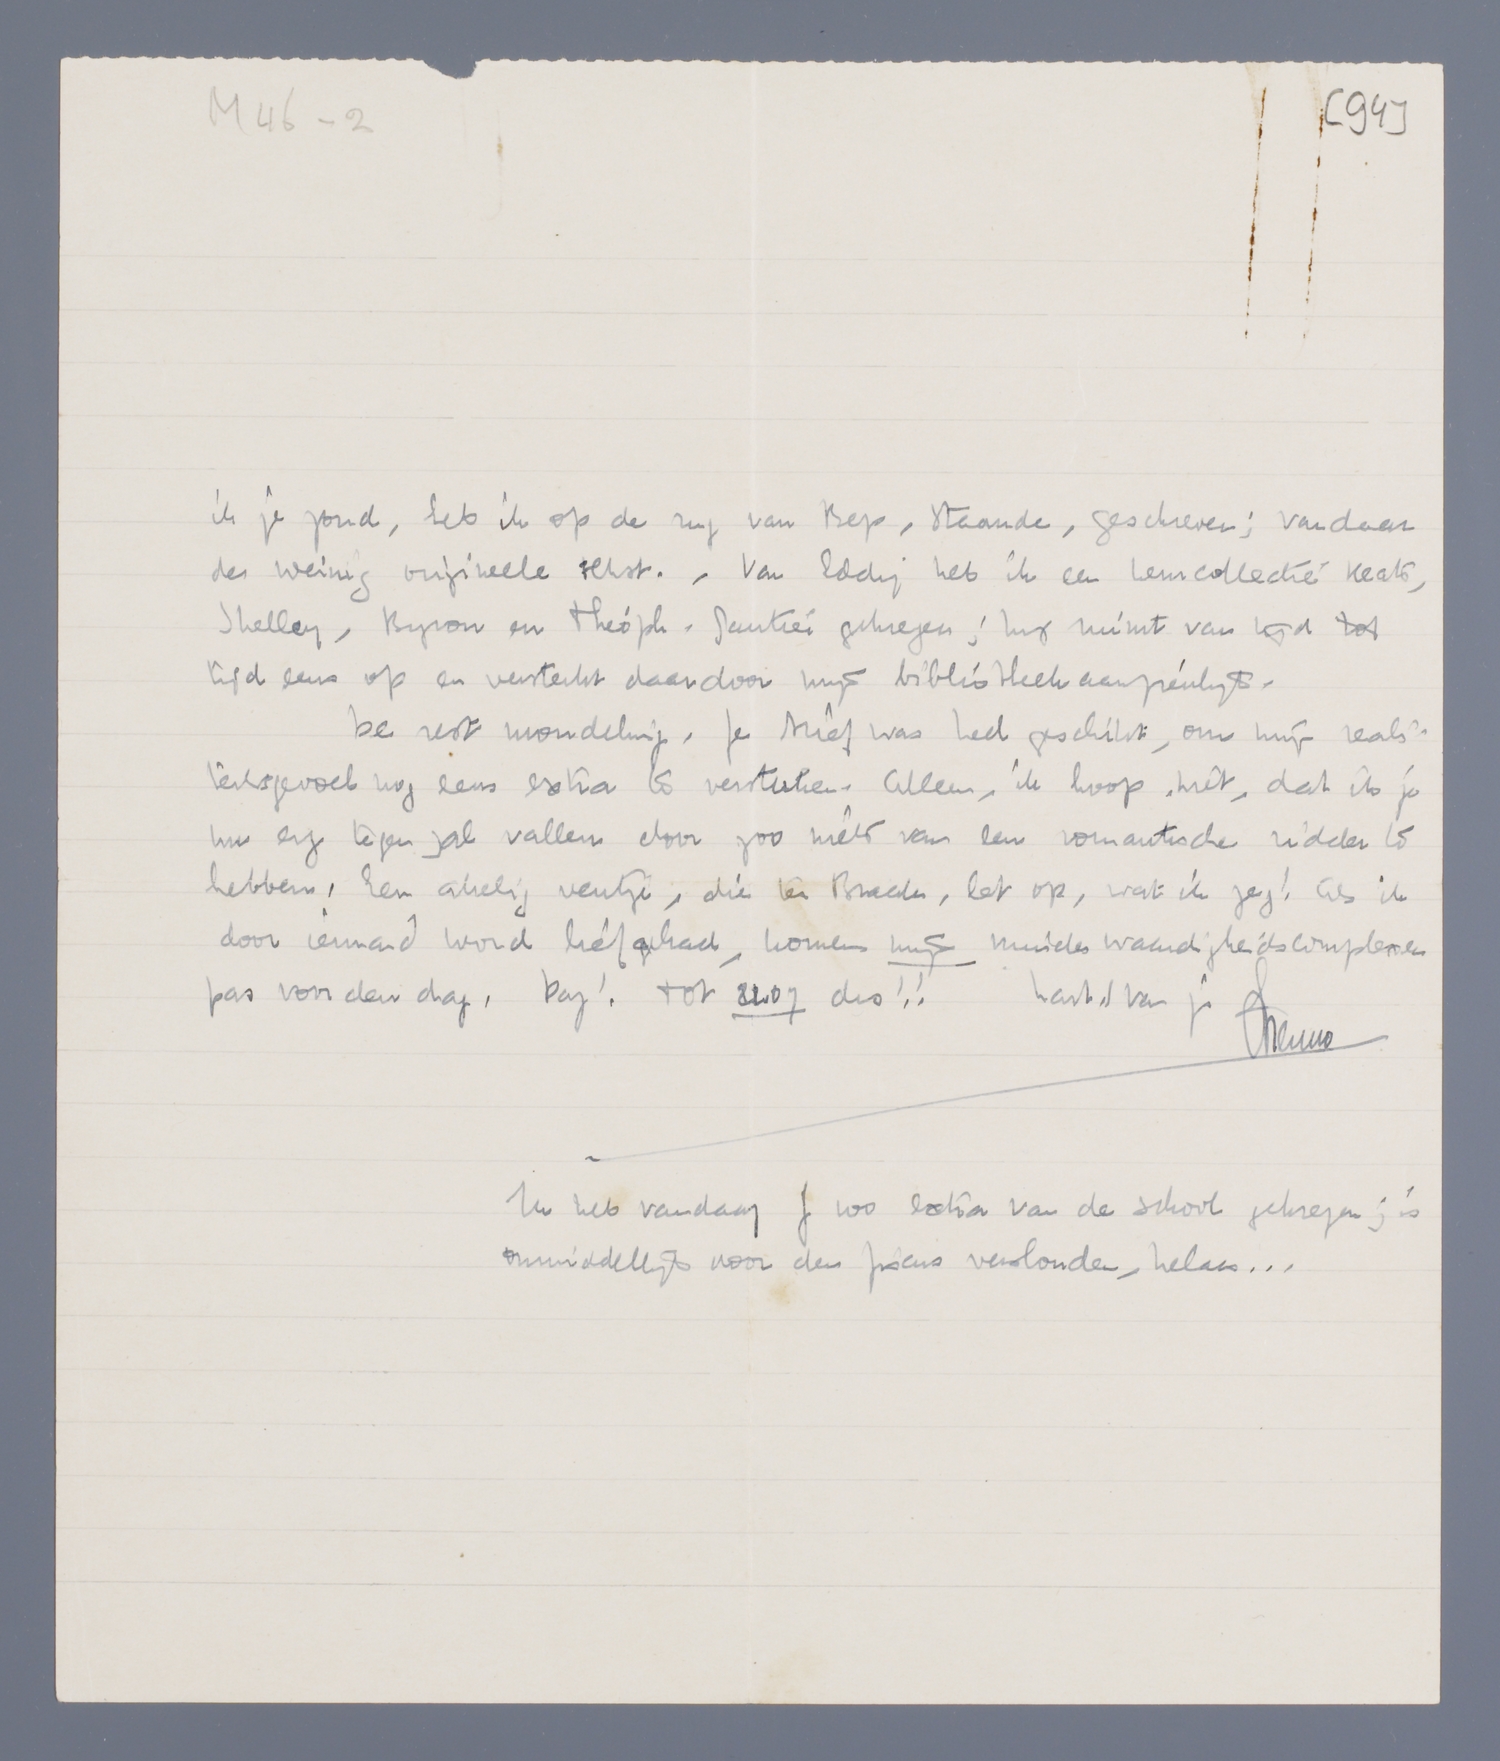 M46-2
[94]
ik je zond, heb ik op de rug van Bep, staande, geschreven; vandaar
den weinig origineele tekst. Van Eddy heb ik een keurcollectie Keats,
Shelley, Byron en Théoph. Gautier gekregen; hij ruimt van tijd tot
tijd eens op en versterkt daardoor mijn bibliotheek aanzienlijk.
De rest mondeling. Je brief was heel geschikt, om mijn reali-
teitsgevoel nog eens extra te versterken. Alleen, ik hoop niet, dat ik je
nu erg tegen zal vallen door zoo niets van een romantische ridder te
hebben. Een akelig ventje, die ter Braak, let op, wat ik zeg! Als ik
door iemand word liefgehad, komen mijn minderwaardigheidscomplexen
pas voor den dag. Dag! Tot 21.07 dus!! hart. v van je
Menno
Ik heb vandaag f 100 extra van de school gekregen; is
onmiddellijk voor den fiscus verslonden, helaas...